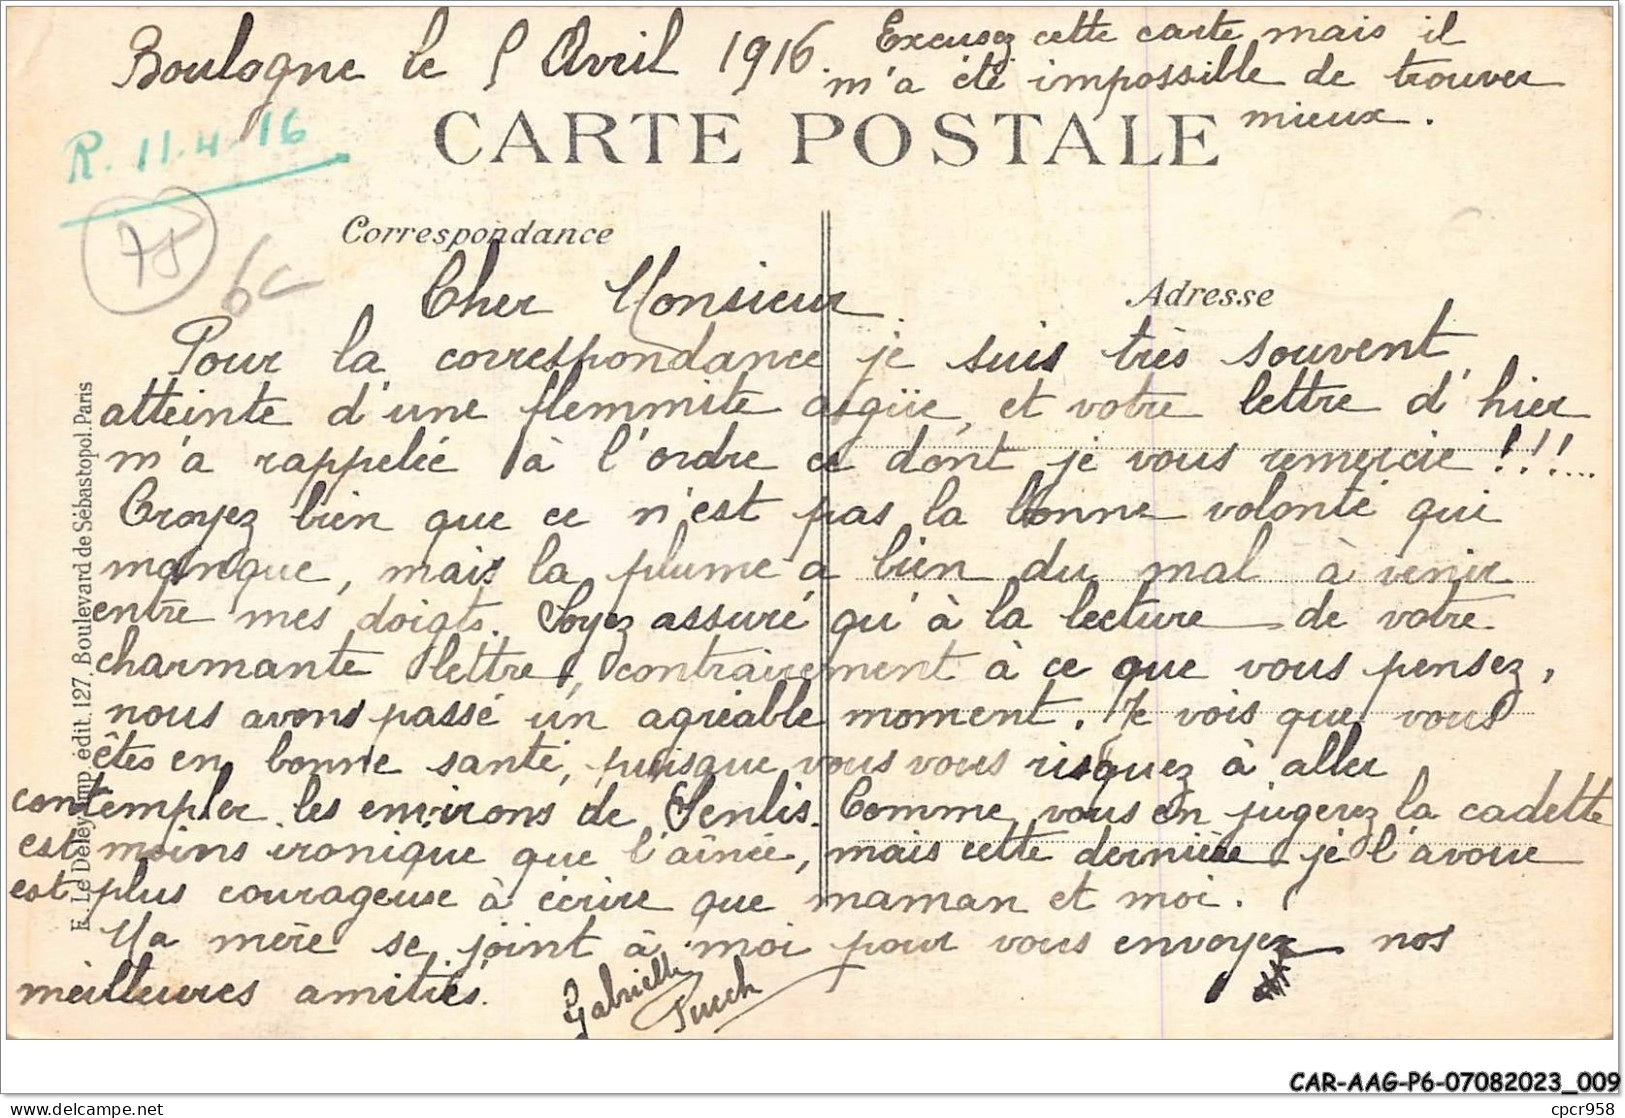 Boulogne le 5 Avril 1916.
Excusez cette carte mais il
m'a été impossible de trouver
mieux.
R. 11.4.16
CARTE POSTALE
78
6c
Correspondance
Adresse
Cher Monsieur
Pour la correspondance je suis très souvent
atteinte d'une flemmite asgüe, et votre lettre d'hier
m'a rappelée à l'ordre ce dont je vous remercie !!!...
Croyez bien que ce n'est pas la bonne volonté qui
manque, mais la plume a bien du mal à venir
entre mes doigts. Soyez assuré qu'à la lecture de votre
charmante lettre, contrairement à ce que vous pensez,
nous avons passé un agréable moment. Je vois que vous
êtes en bonne santé, puisque vous vous risquez à aller
contempler les environs de Senlis. Comme vous en jugerez la cadette
est moins ironique que l'aînée, mais cette dernière je l'avoue
est plus courageuse à écrire que maman et moi.
Ma mère se joint à moi pour vous envoyer nos
meilleures amitiés.
Gabrielle
E. Le Deley, imp. édit. 127, Boulevard de Sébastopol. Paris
CAR-AAG-P6-07082023_009
delcampe.net
cpcr958